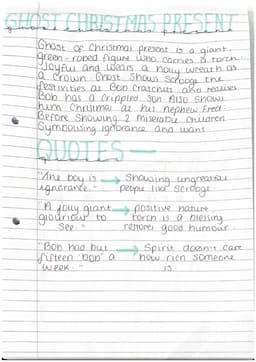 GHOST CHRISTMAS PRESENT
Ghost of Christmas present is a giant,
green-robed figure who carries a torch.
Joyful and wears a holly wreath as
a crown. Ghost shows Scrooge the
festivities at Bob Cratchits and realises
Bob has a crippled son. Also shows
him Christmas at his nephew Fred.
Before showing 2 miserable children
Symbolising ignorance and want.
QUOTES —
"The boy is → Showing ungrateful
ignorance." people like Scrooge.
"A jolly giant → positive nature
glourious to torch is a blessing
see." restores good humour.
"Bob had but → Spirit doesn't care
fifteen 'bob' a how rich someone
week." is.